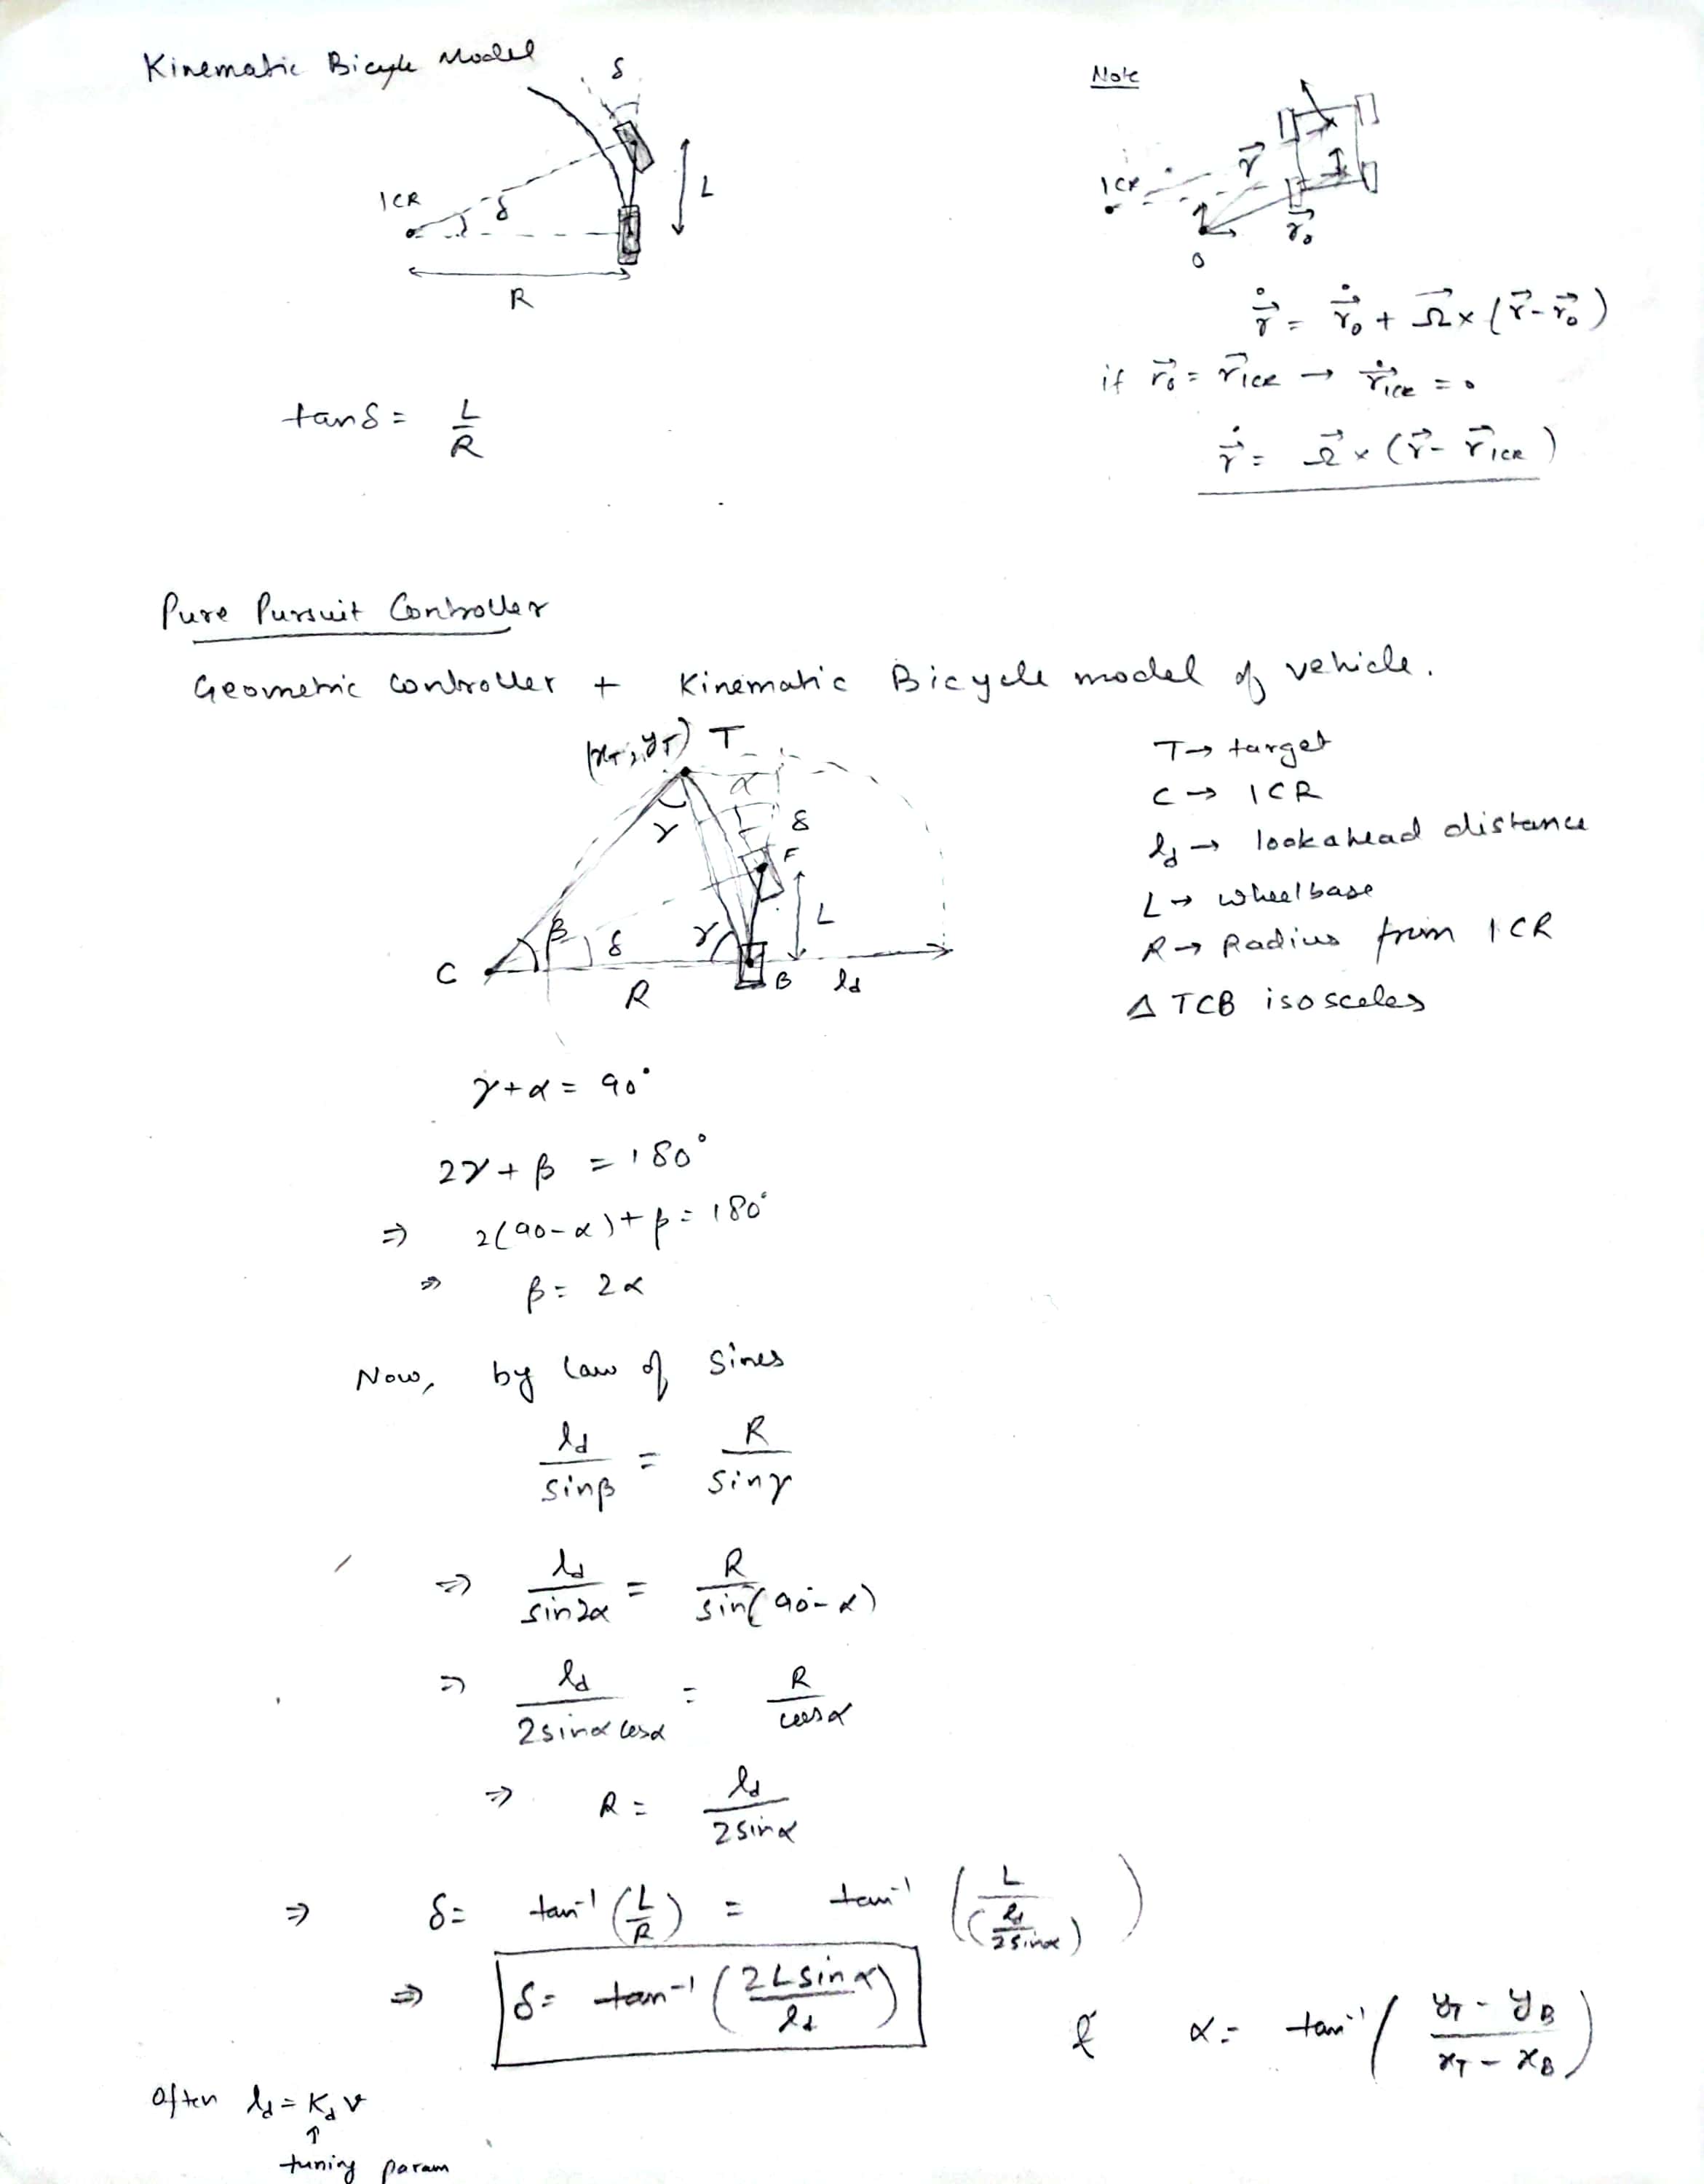 Kinematic Bicycle Model
δ
L
ICR
δ
R
tanδ = L/R
Note
ICR
r⃗
r⃗₀
O
ṙ⃗ = ṙ⃗₀ + Ω⃗ × (r⃗ - r⃗₀)
if r⃗₀ = r⃗ICR → ṙ⃗ICR = 0
ṙ⃗ = Ω⃗ × (r⃗ - r⃗ICR)
Pure Pursuit Controller
Geometric controller + Kinematic Bicycle model of vehicle.
(xT, yT) T
α
γ
δ
F
L
β
δ
γ
C
R
B
ld
T → target
C → ICR
ld → lookahead distance
L → wheelbase
R → Radius from ICR
Δ TCB isosceles
γ + α = 90°
2γ + β = 180°
⇒ 2(90 - α) + β = 180°
⇒ β = 2α
Now, by law of sines
ld/sinβ = R/sinγ
⇒ ld/sin2α = R/sin(90 - α)
⇒ ld/2sinα cosα = R/cosα
⇒ R = ld/2sinα
⇒ δ = tan⁻¹(L/R) = tan⁻¹(L/(ld/2sinα))
⇒ δ = tan⁻¹(2Lsinα/ld)
& α = tan⁻¹(yT - yB/xT - xB)
Often ld = Kd v
↑
tuning param